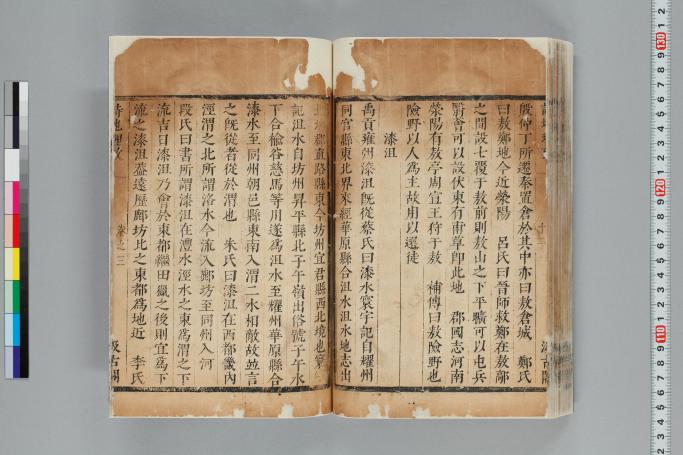 殷仲丁所遷秦置倉於其中亦曰敖倉城　鄭氏
曰敖鄭地今近滎陽　呂氏曰晉師救鄭在敖鄗
之間設七覆于敖前則敖山之下平曠可以屯兵
翳薈可以設伏東有甫草即此地　郡國志河南
滎陽有敖亭周宣王狩于敖　補傳曰敖險野也
險野以人為主故用以選徒
漆沮
禹貢雍州漆沮既從蔡氏曰漆水寰宇記自耀州
同官縣東北界來經華原縣合沮水沮水地志出
北地郡直路縣東今坊州宜君縣西北境也寰宇
記沮水自坊州昇平縣北子午嶺出俗號子午水
下合榆谷慈馬等川遂為沮水至耀州華原縣合
漆水至同州朝邑縣東南入渭二水相敵故並言
之既從者從於渭也　朱氏曰漆沮在西都畿內
涇渭之北所謂洛水今流入鄜坊至同州入河
段氏曰書所謂漆沮在灃水涇水之東為渭之下
流吉日漆沮乃會於東都繼田獵之後則宜為下
流之漆沮蓋遠歷鄜坊北之東都為地近　李氏
詩地理攷
卷之三
汲古閣